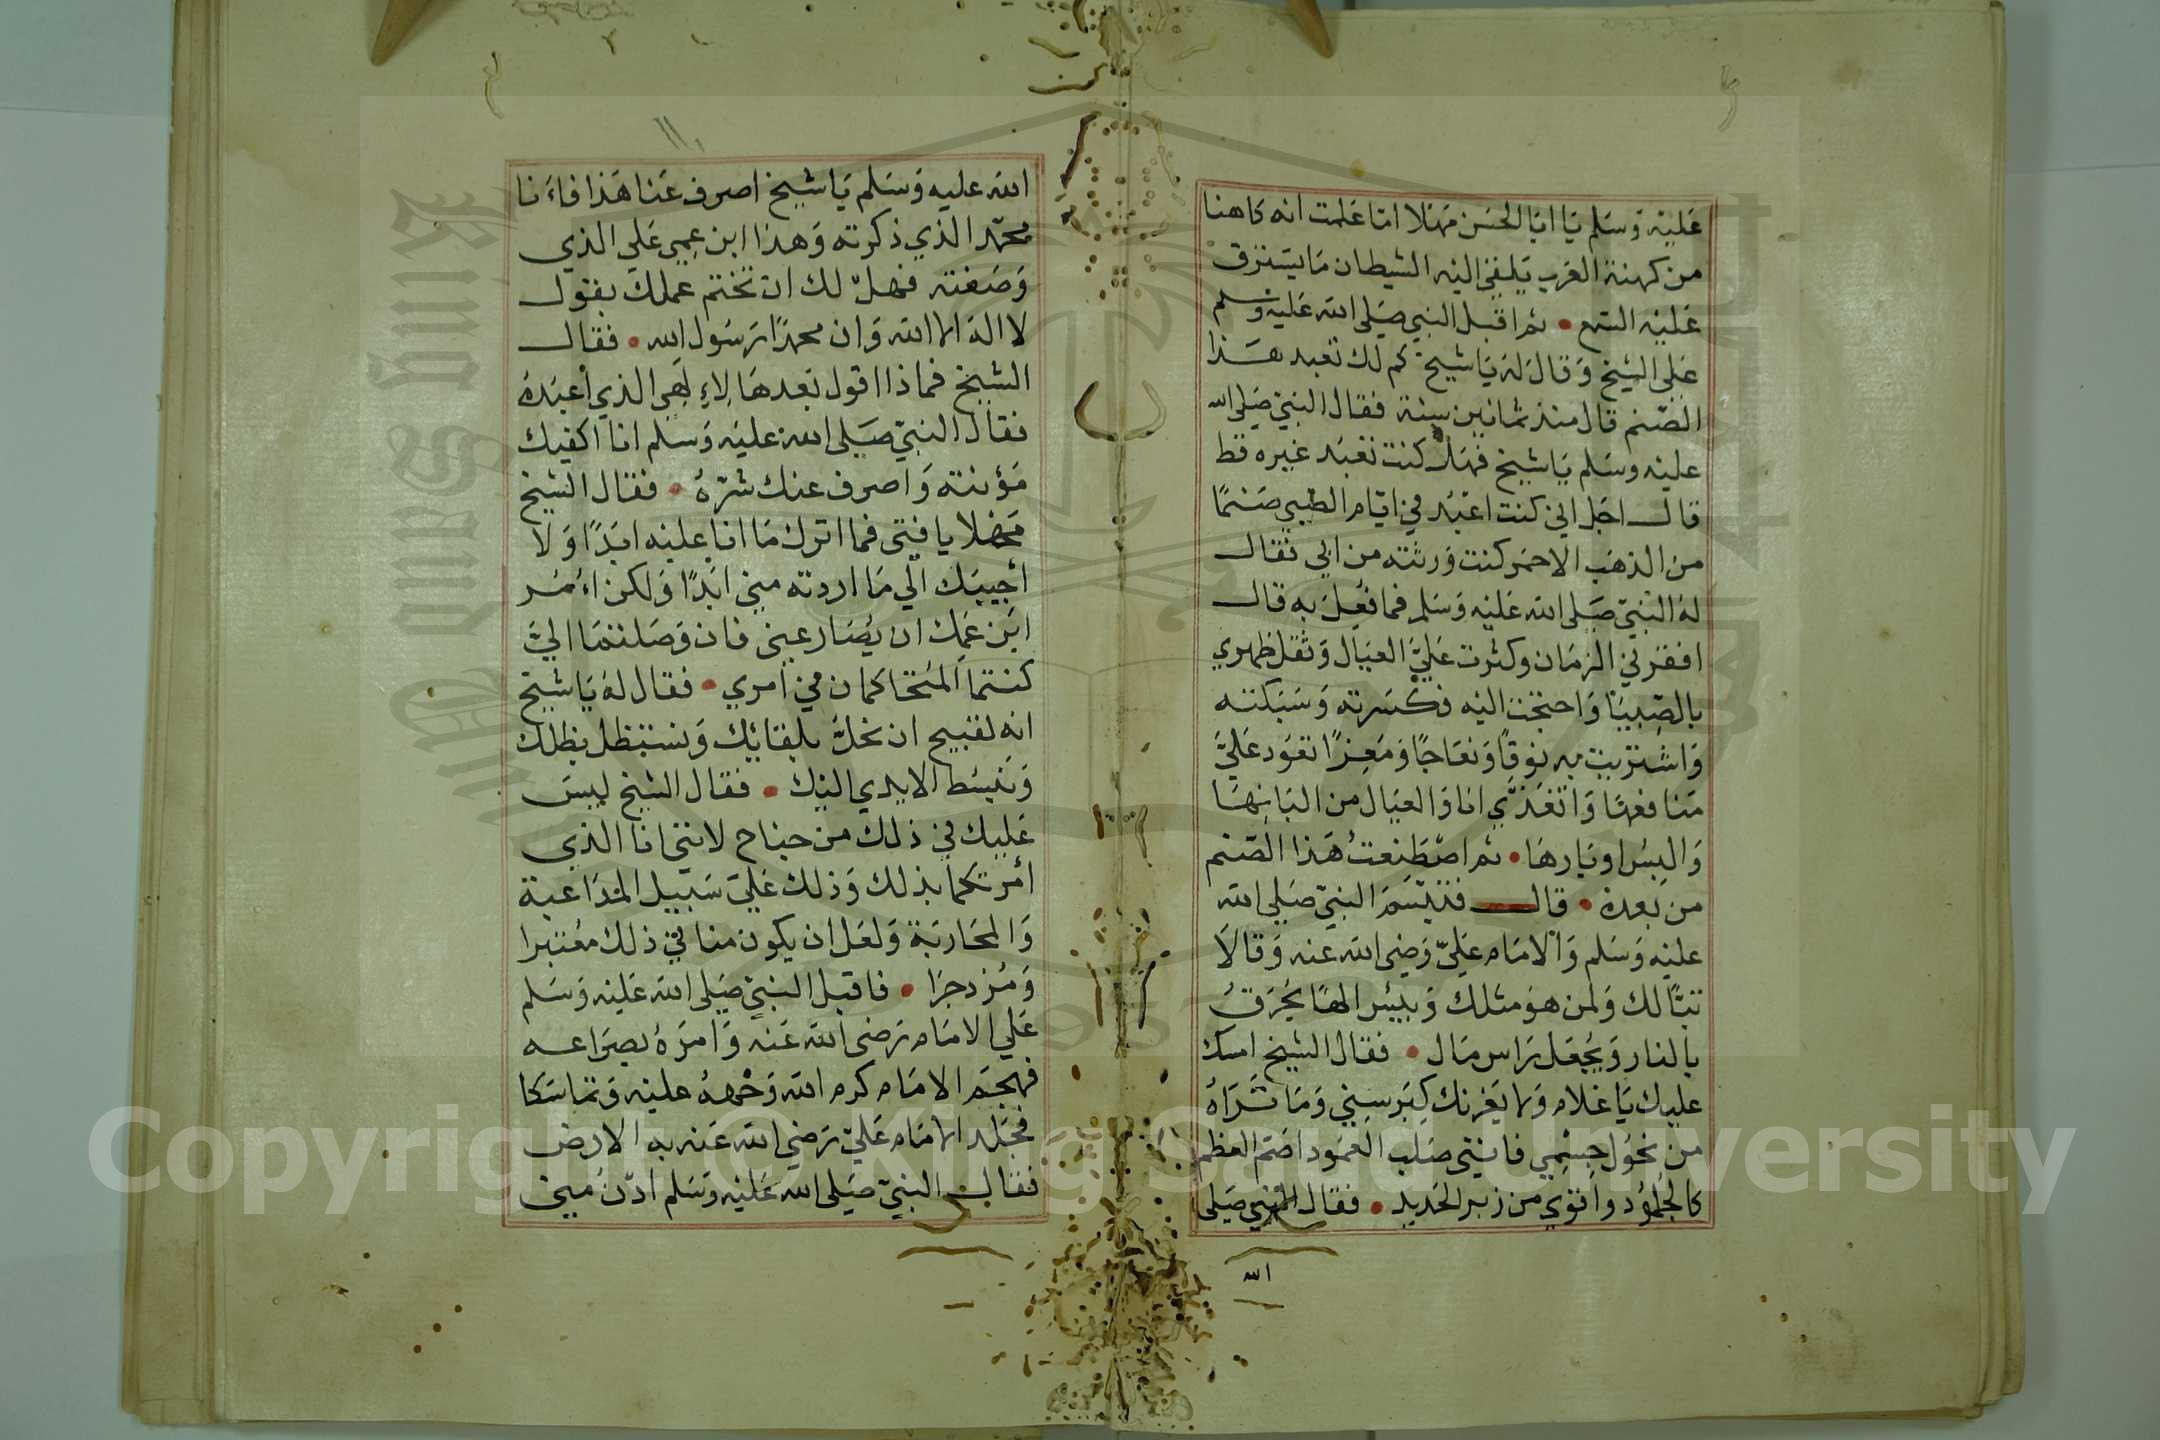 عَليْه وَسَلم يَا ابَا الحسَن مَهْلا امَا عَلمت انه كاهنا
من كهنة العرَب يَلقي اليْه الشيطان مَا يسَترق
عَليْه السَّمع • ثم اقبل النبي صَلى الله عَليه وسلم
عَلى الشيخ وَقالَ لهُ يَا شيخ كم لك تعبد هَذا
الصّنم قال منذ ثمانين سنة فقال النبيّ صَلى الله
عليْه وسَلم يَا شيخ فهَلْ كنت تعْبُد غيره قط
قال اجَل اني كنت اعْبُد في ايّام الصّبي صَنمًا
من الذهَب الاحمَر كنت وَرثته من ابي فقال
لهُ النبيّ صَلى الله عَليْه وَسَلم فما فعِلَ به قال
افقرَني الزمَان وكثرت عَليَّ العيَال وَثقل ظهري
بالصِّبيَا وَاحتجْت اليْه فكسَرته وَسَبكته
وَاشتريت به نوقاً وَنعَاجًا وَمَعِزًا تعوَد عَليَّ
منافعهَا وَاتغَذّي انا وَالعيَال من البَانهَا
وَالبسُ اوبَارهَا • ثم اصْطنعتُ هَذا الصّنم
من بَعده • قال فتبسّمَ النبيّ صَلى الله
عليْه وَسَلم وَالامَام عَليّ رَضى الله عنه وَقالَا
تبًّا لك وَلمن هوَ مثلك وَبئس الهًا يُحرَقُ
بالنار وَيُجعَل رَاس مَال • فقال الشيخ امسك
عليك يَا غلام وَلا يَغرنك كِبَر سني وَمَا تَرَاهُ
من نحُول جسْمِي فانني صَلب العمَود اصَم العظم
كالجُلمُود وَاقوي من زبر الحَديد • فقال النبي صَلى
الله
الله عليه وَسَلم يَا شيخ اصرف عَنا هَذا فاءَنا
محمّد الذي ذكرته وَهذا ابن عمي عَلي الذي
وَصَفته فهلّ لك ان تختم عملكَ بقول
لا الهَ الا الله وَان محمدًا رَسُول الله • فقال
الشيخ فماذا اقول بَعدهَا لاِءِلَهِي الذي أعبَدهُ
فقال النبيّ صَلى الله عليْه وَسَلم انا اكفيك
مَؤنته وَاصرف عنك شرّهُ • فقال الشيخ
مَهلا يا فتى فما اترك مَا انا عليْه ابَدًا وَلَا
أجيبَك الي مَا اردته مني ابَدًا وَلكن اءمُر
ابن عَمكِ ان يُصَارعني فان وَصَلتمَا اليَّ
كنتما المُتحَاكمان في امري • فقال لهُ يَا شيخ
انه لقبيح ان نحلّ بلقائك وَنستظل بظلك
وَنبسُط الايدي اليْك • فقال الشيخ ليسَ
عَليك في ذلك من جناح لانني انا الذي
أمَرتكما بذلك وَذلك عَليَ سَبيل المدَاعبة
وَالمحَاربَة وَلعَل ان يكون منا في ذلك معْتبرا
وَمُزدجرَا • فاقبل النبيّ صَلى الله عَليْه وَسَلم
عَلي الامَام رَضى الله عَنه وَامَرَهُ بصرَاعه
فهجَم الامَام كرم الله وَجْههُ عليْه وَتماسَكا
فجَلد الامَام عَليّ رَضي الله عَنه به الارض
فقال النبيّ صَلى الله عَليْه وَسَلم ادّن مني